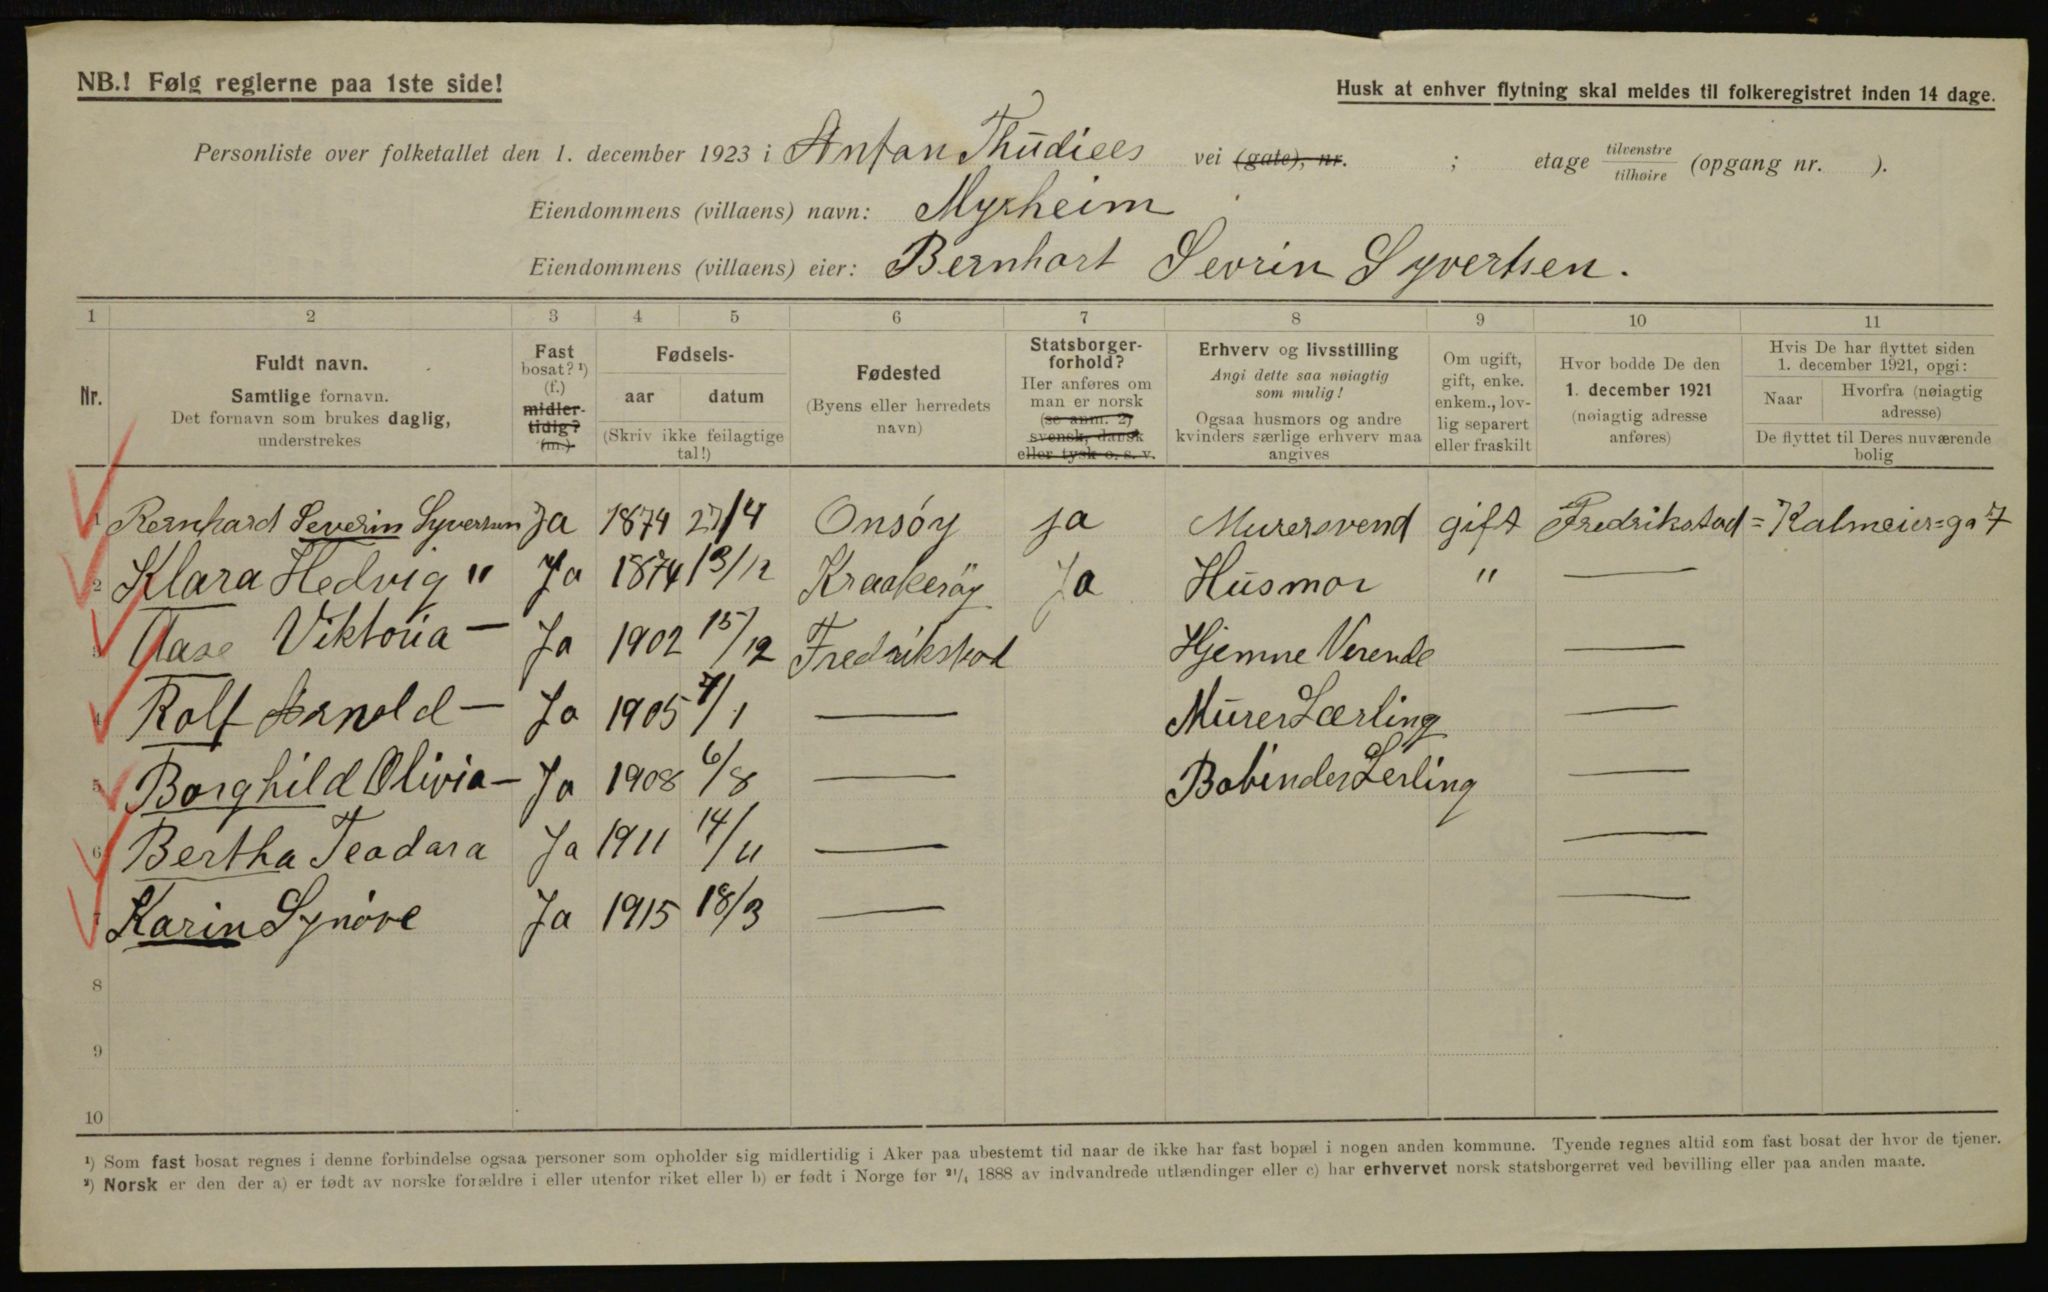 NB.! Følg reglerne paa 1ste side!
Husk at enhver flytning skal meldes til folkeregistret inden 14 dage.
Personliste over folketallet den 1. december 1923 i Anton Thudies vei (gate), nr. ; etage tilvenstre tilhøire (opgang nr. ).
Eiendommens (villaens) navn: Myrheim
Eiendommens (villaens) eier: Bernhart Sevrin Syvertsen.
1 2 3 4 5 6 7 8 9 10 11
Nr.
Fuldt navn.
Samtlige fornavn.
Det fornavn som brukes daglig,
understrekes
Fast
bosat? ¹)
(f.)
midler-
tidig?
(m.)
Fødsels-
aar datum
(Skriv ikke feilagtige
tal!)
Fødested
(Byens eller herredets
navn)
Statsborger-
forhold?
Her anføres om
man er norsk
(se anm. 2)
svensk, dansk
eller tysk o. s. v.
Erhverv og livsstilling
Angi dette saa nøiagtig
som mulig!
Ogsaa husmors og andre
kvinders særlige erhverv maa
angives
Om ugift,
gift, enke.
enkem., lov-
lig separert
eller fraskilt
Hvor bodde De den
1. december 1921
(nøiagtig adresse
anføres)
Hvis De har flyttet siden
1. december 1921, opgi:
Naar Hvorfra (nøiagtig
adresse)
De flyttet til Deres nuværende
bolig
1 Bernhard Severin Syversen Ja 1874 27/4 Onsöy ja Murersvend gift Fredrikstad = Kalmeier=ga 7
2 Klara Hedvig " Ja 1874 13/12 Kraakeröy Ja Husmor " —
3 Aase Viktoria — Ja 1902 15/12 Fredrikstad Hjemne Verende —
4 Rolf Arnold — Ja 1905 7/1 — Murer Lærling —
5 Borghild Olivia — Ja 1908 6/8 — Bobinder Lerling —
6 Bertha Teodara Ja 1911 14/11 — —
7 Karin Synöve Ja 1915 18/3 — —
8
9
10
¹) Som fast bosat regnes i denne forbindelse ogsaa personer som opholder sig midlertidig i Aker paa ubestemt tid naar de ikke har fast bopæl i nogen anden kommune. Tyende regnes altid som fast bosat der hvor de tjener.
²) Norsk er den der a) er født av norske forældre i eller utenfor riket eller b) er født i Norge før ²¹/₄ 1888 av indvandrede utlændinger eller c) har erhvervet norsk statsborgerret ved bevilling eller paa anden maate.